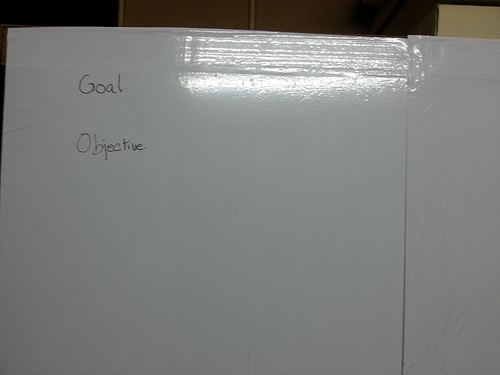 Goal
Objective.